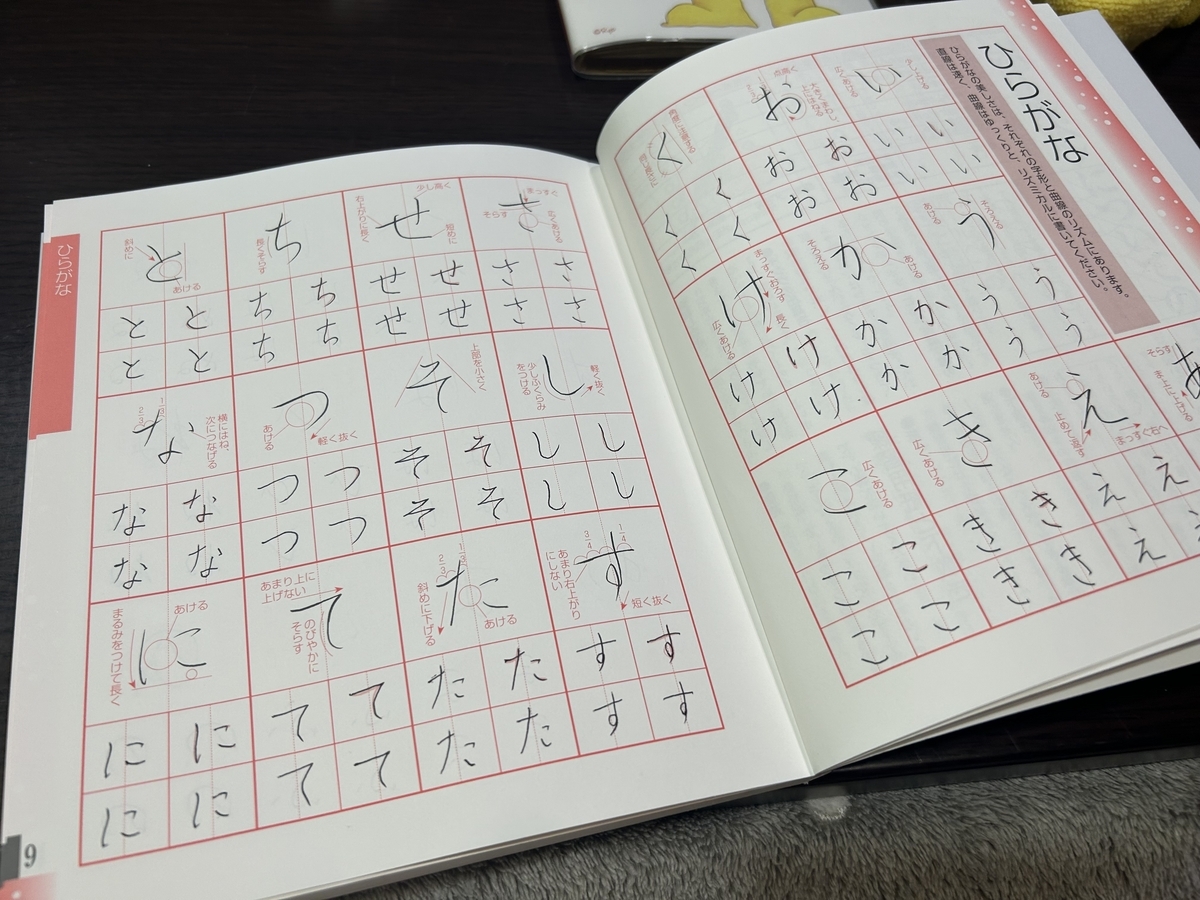 ひらがな
ひらがなの美しさは、それぞれの字形と曲線のリズムにあります。
直線は速く、曲線はゆっくりと、リズミカルに書いてください。
あ
そらす
ま上に上げる
い
少し上げる
広くあける
い い
い い
う
そろえる
あける
う う
う う
え
あける
止めて返す
まっすぐ右へ
え え
え え
お
点高く
大きくまわし
上にはねる
お お
お お
か
そろえる
あける
か か
か か
き
広くあける
き き
き き
く
く く
く く
け
まっすぐおろす
長く
広くあける
け け
け け
こ
広くあける
こ こ
こ こ
ひらがな
さ
まっすぐ
そらす
広くあける
さ さ
さ さ
し
軽く抜く
少しふくらみ
をつける
し し
し し
す
3/4
1/4
あまり右上がり
にしない
短く抜く
す す
す す
せ
少し高く
右上がりに長く
短めに
せ せ
せ せ
そ
上部を小さく
そ そ
そ そ
た
1/3
2/3
斜めに下げる
あける
た た
た た
ち
長くそらす
ち ち
ち ち
つ
あける
軽く抜く
つ つ
つ つ
て
あまり上に
上げない
のびやかに
そらす
て て
て て
と
斜めに
あける
と と
と と
な
1/3
2/3
横にはね、
次につなげる
な な
な な
に
あける
まるみをつけて長く
に に
に に
9